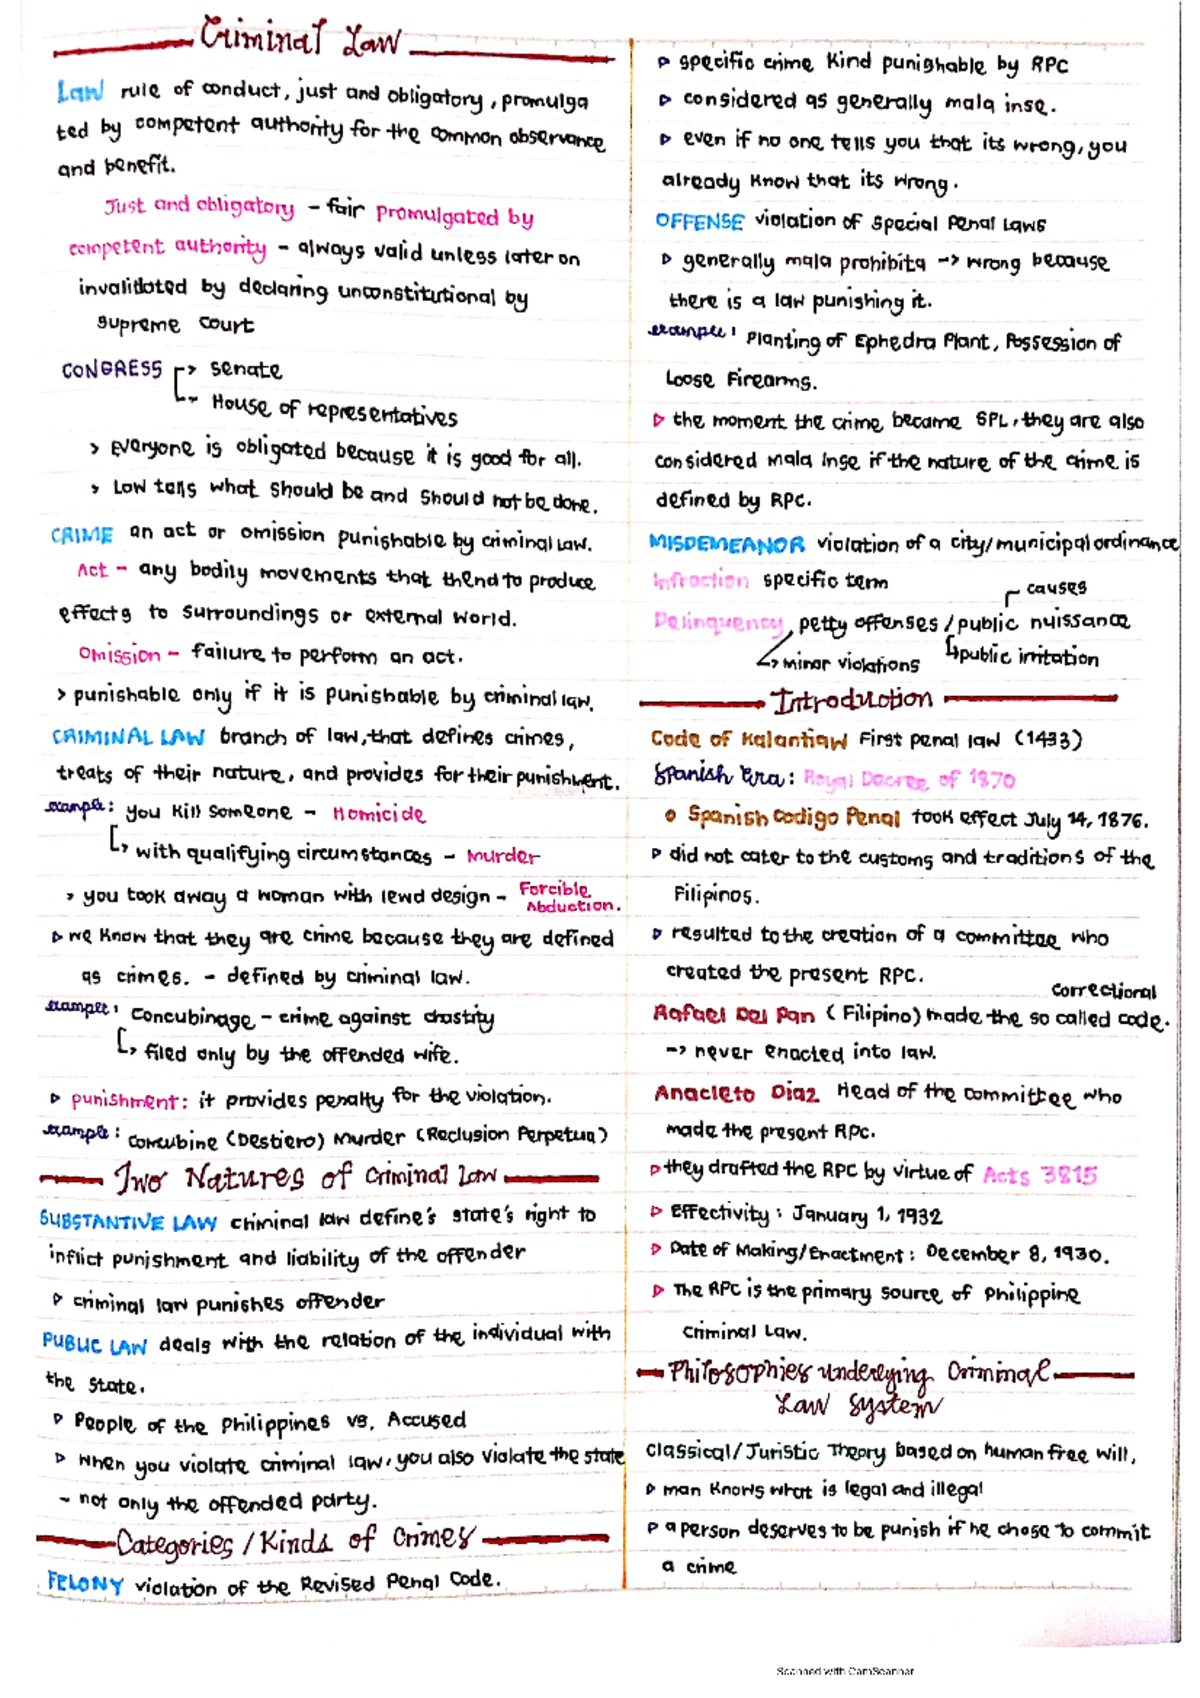 Criminal Law
Law rule of conduct, just and obligatory, promulga
ted by competent authority for the common observance
and benefit.
Just and obligatory - fair promulgated by
competent authority - always valid unless later on
invalidated by declaring unconstitutional by
supreme court
CONGRESS -> senate
-> House of representatives
> Everyone is obligated because it is good for all.
> Law tells what should be and should not be done.
CRIME an act or omission punishable by criminal law.
Act - any bodily movements that thend to produce
effects to surroundings or external world.
Omission - failure to perform an act.
> punishable only if it is punishable by criminal law.
CRIMINAL LAW branch of law, that defines crimes,
treats of their nature, and provides for their punishment.
example: you kill someone - Homicide
-> with qualifying circumstances - Murder
> you took away a woman with lewd design - Forcible
Abduction.
▷ we know that they are crime because they are defined
as crimes. - defined by criminal law.
example: Concubinage - crime against chastity
-> filed only by the offended wife.
▷ punishment: it provides penalty for the violation.
example: concubine (Destiero) Murder (Reclusion Perpetua)
Two Natures of Criminal Law
SUBSTANTIVE LAW criminal law define's state's right to
inflict punishment and liability of the offender
▷ criminal law punishes offender
PUBLIC LAW deals with the relation of the individual with
the state.
▷ People of the Philippines vs. Accused
▷ when you violate criminal law, you also violate the state
- not only the offended party.
Categories / Kinds of Crimes
FELONY violation of the Revised Penal Code.
▷ specific crime kind punishable by RPC
▷ considered as generally mala inse.
▷ even if no one tells you that its wrong, you
already know that its wrong.
OFFENSE violation of special Penal Laws
▷ generally mala prohibita -> wrong because
there is a law punishing it.
example: Planting of Ephedra Plant, Possession of
Loose Firearms.
▷ the moment the crime became SPL, they are also
considered mala inse if the nature of the crime is
defined by RPC.
MISDEMEANOR violation of a city/municipal ordinance
Infraction specific term
causes
Delinquency petty offenses / public nuissance
-> minor violations -> public irritation
Introduction
Code of Kalantiaw First penal law (1433)
Spanish Era: Royal Decree of 1870
o Spanish Codigo Penal took effect July 14, 1876.
▷ did not cater to the customs and traditions of the
Filipinos.
▷ resulted to the creation of a committee who
created the present RPC.
correctional
Rafael Del Pan (Filipino) made the so called code.
-> never enacted into law.
Anacleto Diaz Head of the committee who
made the present RPC.
▷ they drafted the RPC by virtue of Acts 3815
▷ Effectivity: January 1, 1932
▷ Date of Making/Enactment: December 8, 1930.
▷ The RPC is the primary source of Philippine
Criminal Law.
Philosophies underlying Criminal
Law System
Classical/Juristic Theory based on human free will,
▷ man knows what is legal and illegal
▷ a person deserves to be punish if he chose to commit
a crime
Scanned with CamScanner